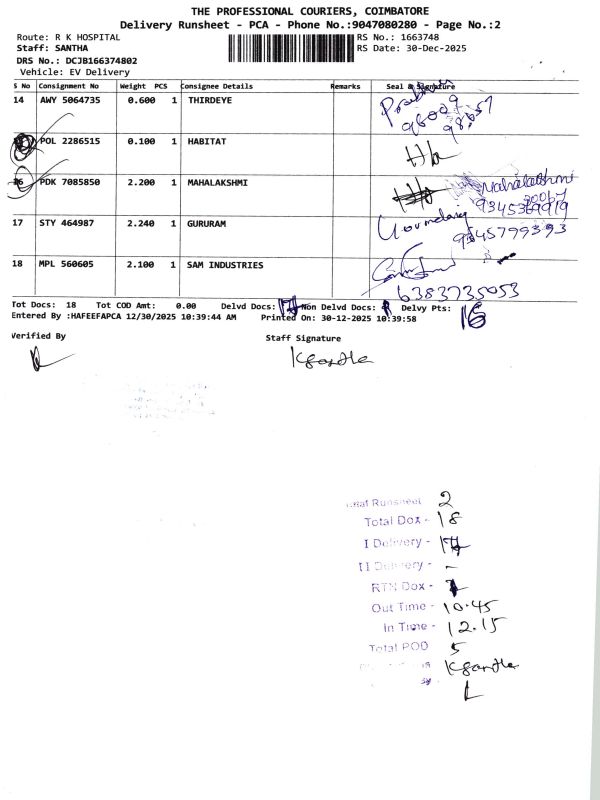 THE PROFESSIONAL COURIERS, COIMBATORE
Delivery Runsheet - PCA - Phone No.:9047080280 - Page No.:2
Route: R K HOSPITAL RS No.: 1663748
Staff: SANTHA RS Date: 30-Dec-2025
DRS No.: DCJB166374802
Vehicle: EV Delivery
S No Consignment No Weight PCS Consignee Details Remarks Seal & Signature
14 AWY 5064735 0.600 1 THIRDEYE
96009
98657
POL 2286515 0.100 1 HABITAT
16 PDK 7085850 2.200 1 MAHALAKSHMI Mahalakshmi
17 STY 464987 2.240 1 GURURAM
9345799393
18 MPL 560605 2.100 1 SAM INDUSTRIES
6383735053
Tot Docs: 18 Tot COD Amt: 0.00 Delvd Docs: Non Delvd Docs: Delvy Pts: 16
Entered By :HAFEEFAPCA 12/30/2025 10:39:44 AM Printed On: 30-12-2025 10:39:58
Verified By Staff Signature
Runsheet 2
Total Dox - 18
I Delivery -
II Delivery - -
RTN Dox -
Out Time - 10.45
In Time - 12.15
Total POD 5